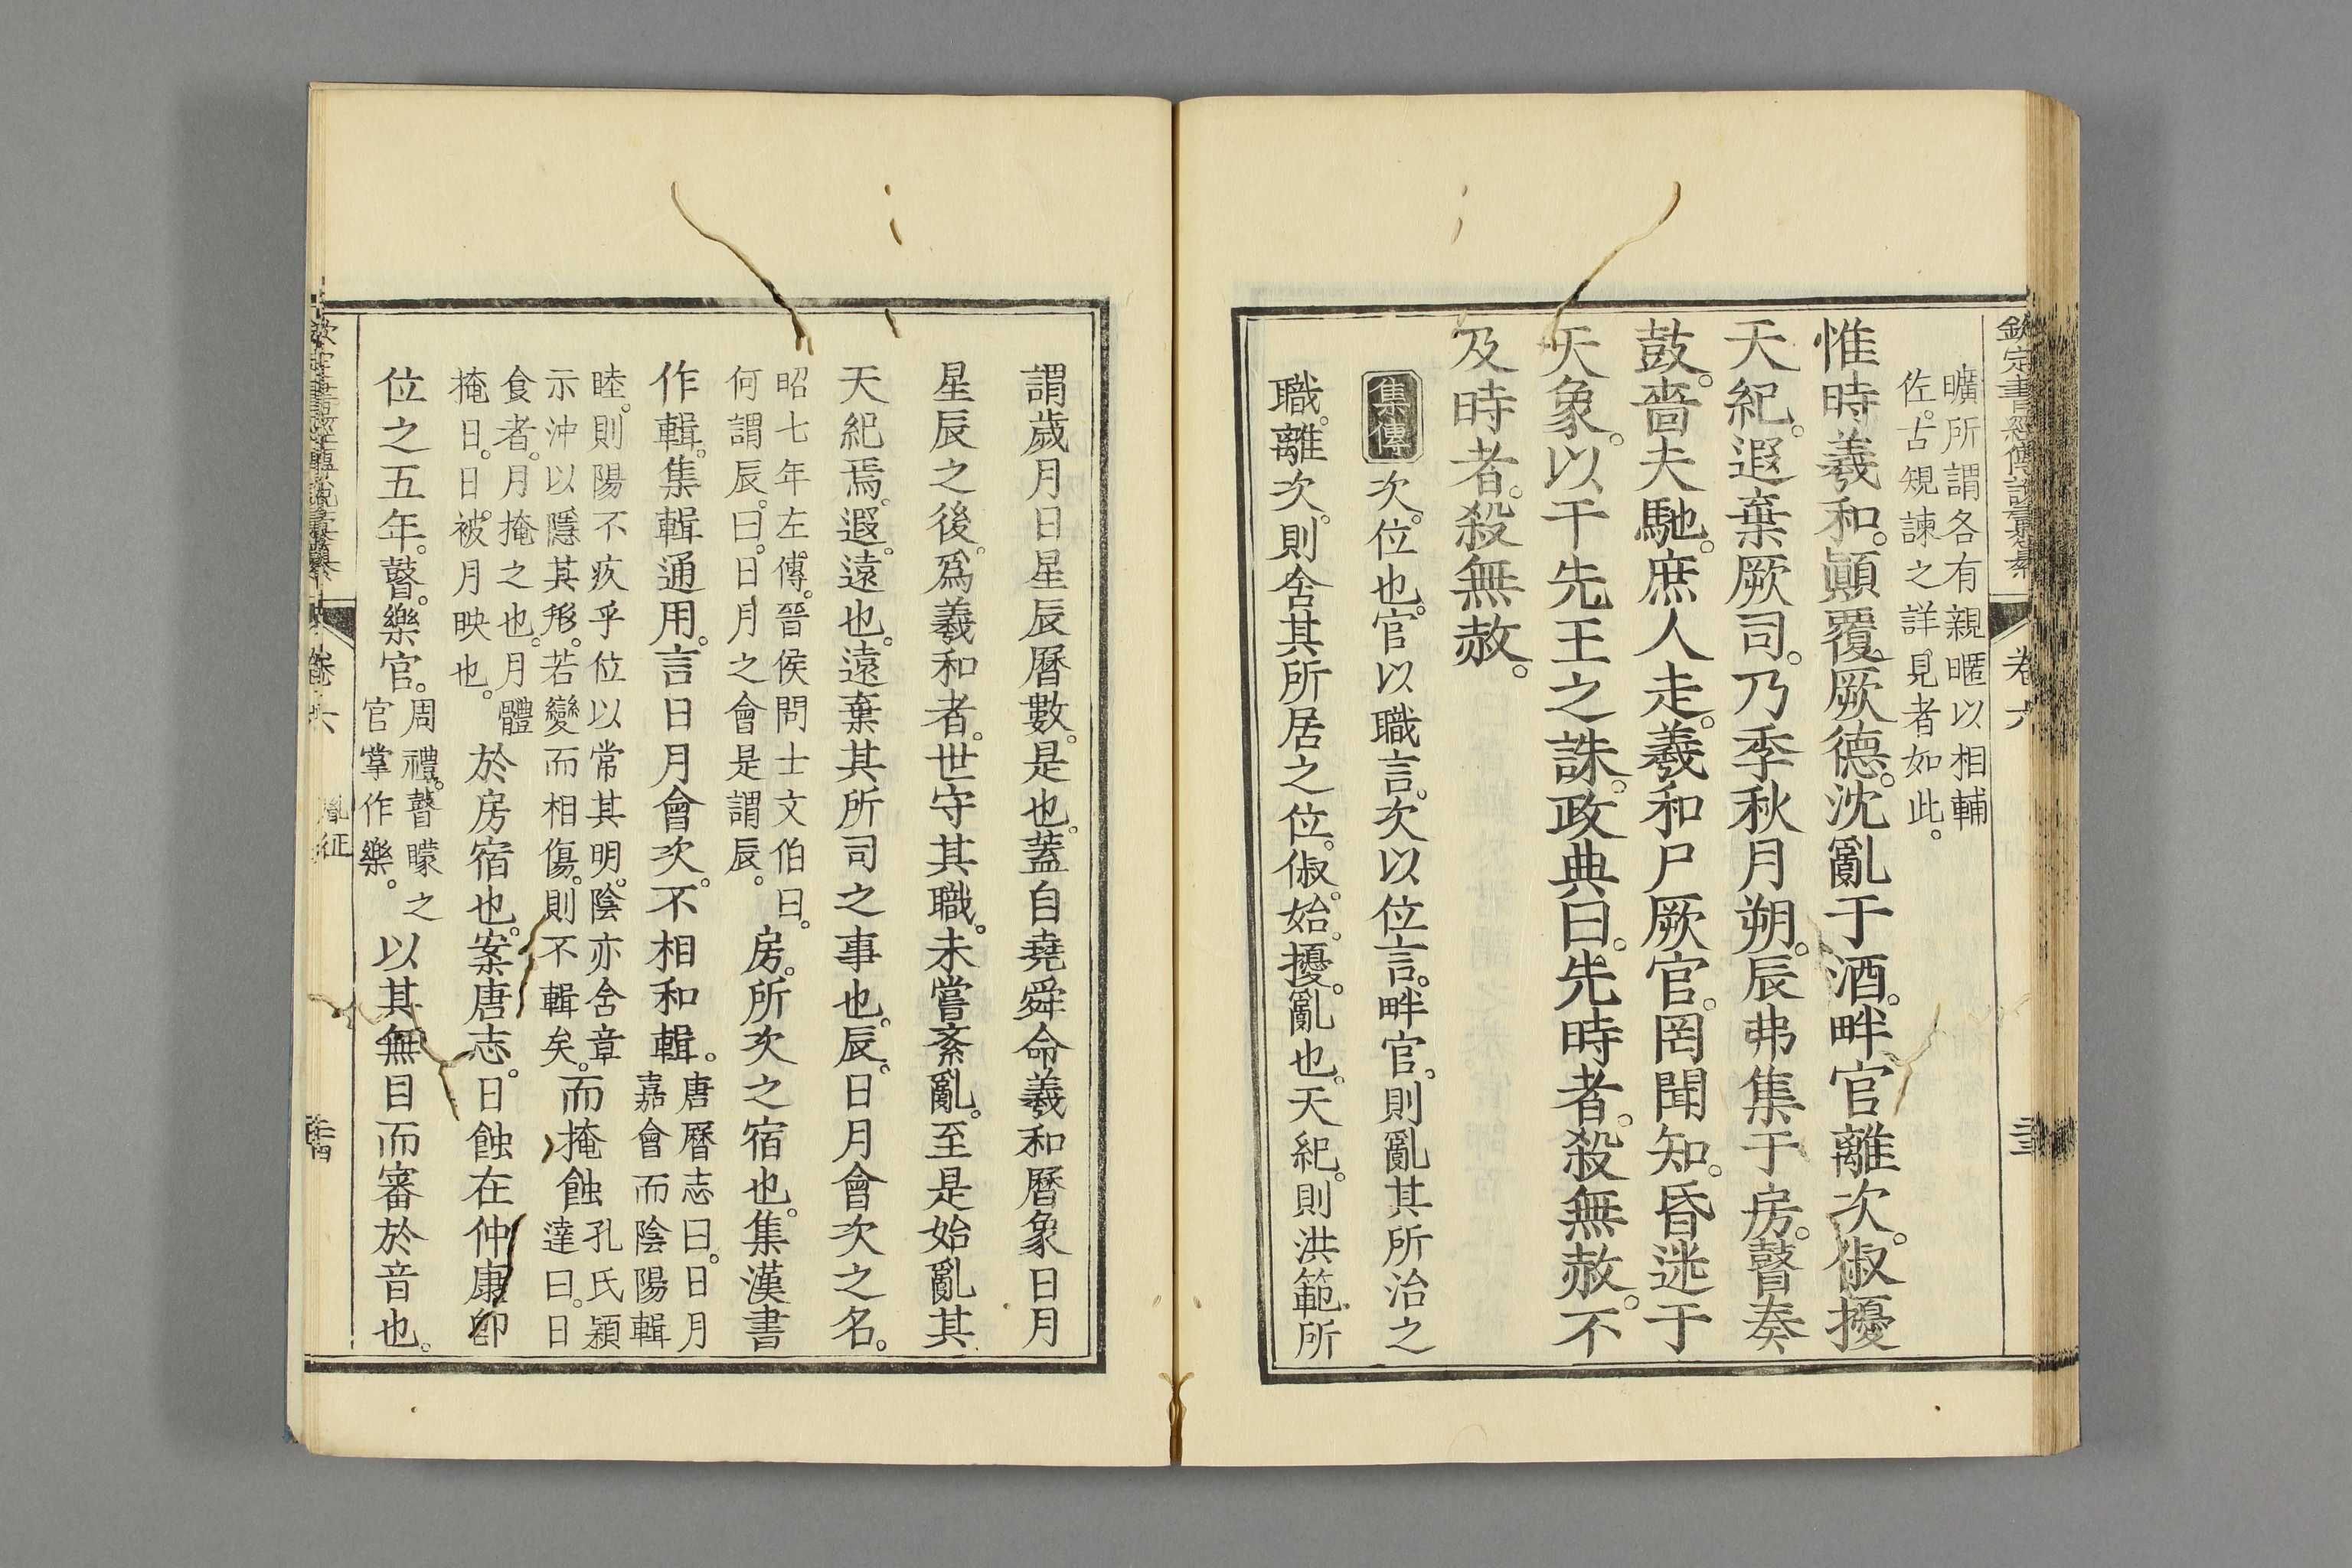 欽定書經傳說彙纂 卷六
曠所謂各有親暱以相輔
佐。古規諫之詳見者如此。
惟時羲和。顚覆厥德。沈亂于酒。畔官離次。俶擾
天紀。遐棄厥司。乃季秋月朔。辰弗集于房。瞽奏
鼓。嗇夫馳。庶人走。羲和尸厥官。罔聞知。昏迷于
天象。以干先王之誅。政典曰。先時者。殺無赦。不
及時者。殺無赦。
集傳 次。位也。官以職言。次以位言。畔官。則亂其所治之
職。離次。則舍其所居之位。俶。始。擾。亂也。天紀。則洪範所
謂歲月日星辰曆數。是也。蓋自堯舜命羲和曆象日月
星辰之後。爲羲和者。世守其職。未嘗紊亂。至是始亂其
天紀焉。遐。遠也。遠棄其所司之事也。辰。日月會次之名。
昭七年左傳。晉侯問士文伯曰。
何謂辰。曰。日月之會是謂辰。
房。所次之宿也。集漢書
作輯。集輯通用。言日月會次。不相和輯。
唐曆志曰。日月
嘉會而陰陽輯
睦。則陽不疚乎位以常其明。陰亦含章
示沖以隱其形。若變而相傷。則不輯矣。
而掩蝕
孔氏穎
達曰。日
食者。月掩之也。月體
掩日。日被月映也。
於房宿也。案唐志。日蝕在仲康卽
位之五年。瞽。樂官。
周禮。瞽矇之
官掌作樂。
以其無目而審於音也。
卷六 胤征